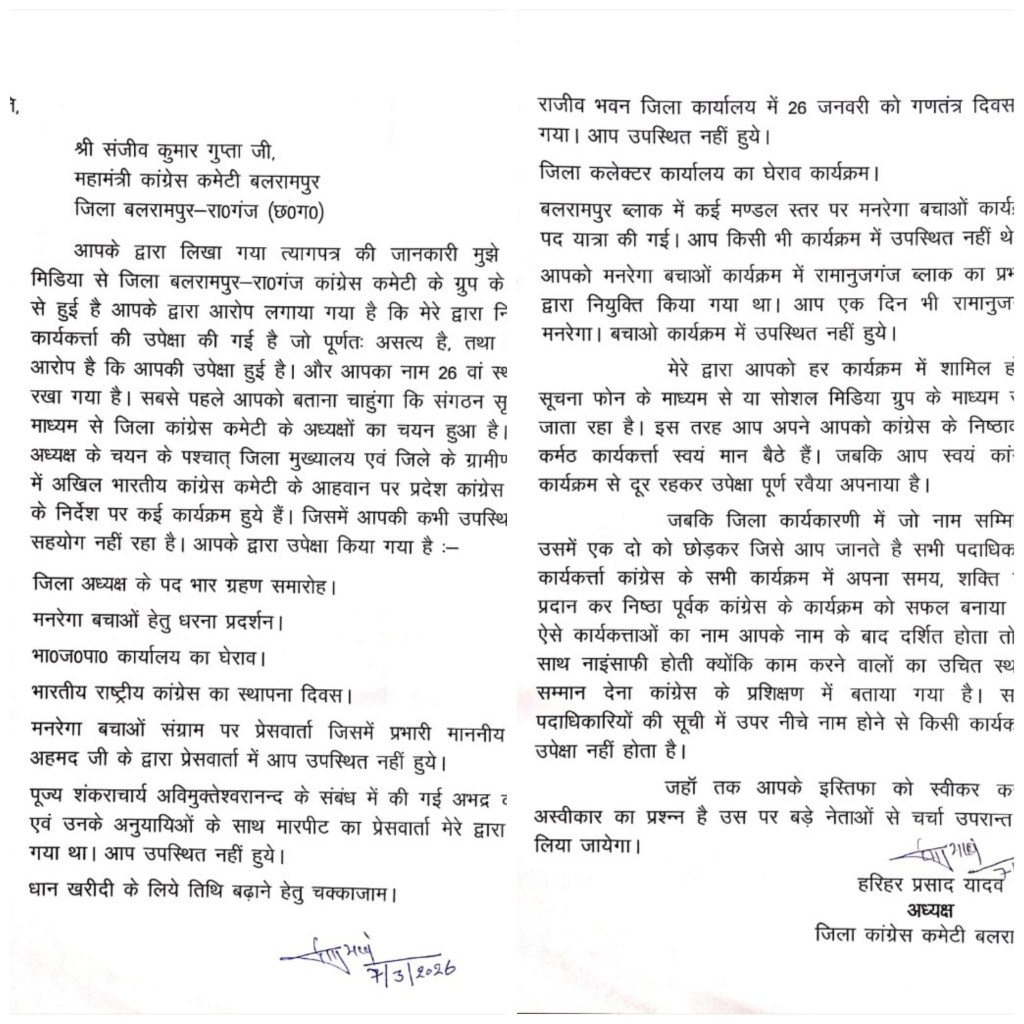 श्री संजीव कुमार गुप्ता जी,
महामंत्री कांग्रेस कमेटी बलरामपुर
जिला बलरामपुर–रा0गंज (छ0ग0)
आपके द्वारा लिखा गया त्यागपत्र की जानकारी मुझे
मिडिया से जिला बलरामपुर–रा0गंज कांग्रेस कमेटी के ग्रुप के
से हुई है आपके द्वारा आरोप लगाया गया है कि मेरे द्वारा
कार्यकर्त्ता की उपेक्षा की गई है जो पूर्णतः असत्य है, तथा
आरोप है कि आपकी उपेक्षा हुई है। और आपका नाम 26 वां
रखा गया है। सबसे पहले आपको बताना चाहुंगा कि संगठन
माध्यम से जिला कांग्रेस कमेटी के अध्यक्षों का चयन हुआ है।
अध्यक्ष के चयन के पश्चात् जिला मुख्यालय एवं जिले के ग्रामीण
में अखिल भारतीय कांग्रेस कमेटी के आहवान पर प्रदेश कांग्रेस
के निर्देश पर कई कार्यक्रम हुये हैं। जिसमें आपकी कभी
सहयोग नहीं रहा है। आपके द्वारा उपेक्षा किया गया है :–
जिला अध्यक्ष के पद भार ग्रहण समारोह।
मनरेगा बचाओं हेतु धरना प्रदर्शन।
भा0ज0पा0 कार्यालय का घेराव।
भारतीय राष्ट्रीय कांग्रेस का स्थापना दिवस।
मनरेगा बचाओं संग्राम पर प्रेसवार्ता जिसमें प्रभारी माननीय
अहमद जी के द्वारा प्रेसवार्ता में आप उपस्थित नहीं हुये।
पूज्य शंकराचार्य अविमुक्तेश्वरानन्द के संबंध में की गई अभद्र
एवं उनके अनुयायिओं के साथ मारपीट का प्रेसवार्ता मेरे द्वारा
गया था। आप उपस्थित नहीं हुये।
धान खरीदी के लिये तिथि बढ़ाने हेतु चक्काजाम।
7/3/2026
राजीव भवन जिला कार्यालय में 26 जनवरी को गणतंत्र दिवस
गया। आप उपस्थित नहीं हुये।
जिला कलेक्टर कार्यालय का घेराव कार्यक्रम।
बलरामपुर ब्लाक में कई मण्डल स्तर पर मनरेगा बचाओं
पद यात्रा की गई। आप किसी भी कार्यक्रम में उपस्थित नहीं थे
आपको मनरेगा बचाओं कार्यक्रम में रामानुजगंज ब्लाक का
द्वारा नियुक्ति किया गया था। आप एक दिन भी
मनरेगा। बचाओ कार्यक्रम में उपस्थित नहीं हुये।
मेरे द्वारा आपको हर कार्यक्रम में शामिल
सूचना फोन के माध्यम से या सोशल मिडिया ग्रुप के माध्यम
जाता रहा है। इस तरह आप अपने आपको कांग्रेस के
कर्मठ कार्यकर्त्ता स्वयं मान बैठे हैं। जबकि आप स्वयं
कार्यक्रम से दूर रहकर उपेक्षा पूर्ण रवैया अपनाया है।
जबकि जिला कार्यकारणी में जो नाम
उसमें एक दो को छोड़कर जिसे आप जानते है सभी
कार्यकर्त्ता कांग्रेस के सभी कार्यक्रम में अपना समय, शक्ति
प्रदान कर निष्ठा पूर्वक कांग्रेस के कार्यक्रम को सफल बनाया
ऐसे कार्यकत्ताओं का नाम आपके नाम के बाद दर्शित होता तो
साथ नाइंसाफी होती क्योंकि काम करने वालों का उचित
सम्मान देना कांग्रेस के प्रशिक्षण में बताया गया है।
पदाधिकारियों की सूची में उपर नीचे नाम होने से किसी
उपेक्षा नहीं होता है।
जहॉ तक आपके इस्तिफा को स्वीकार
अस्वीकार का प्रश्न है उस पर बड़े नेताओं से चर्चा उपरान्त
लिया जायेगा।
हरिहर प्रसाद यादव
अध्यक्ष
जिला कांग्रेस कमेटी